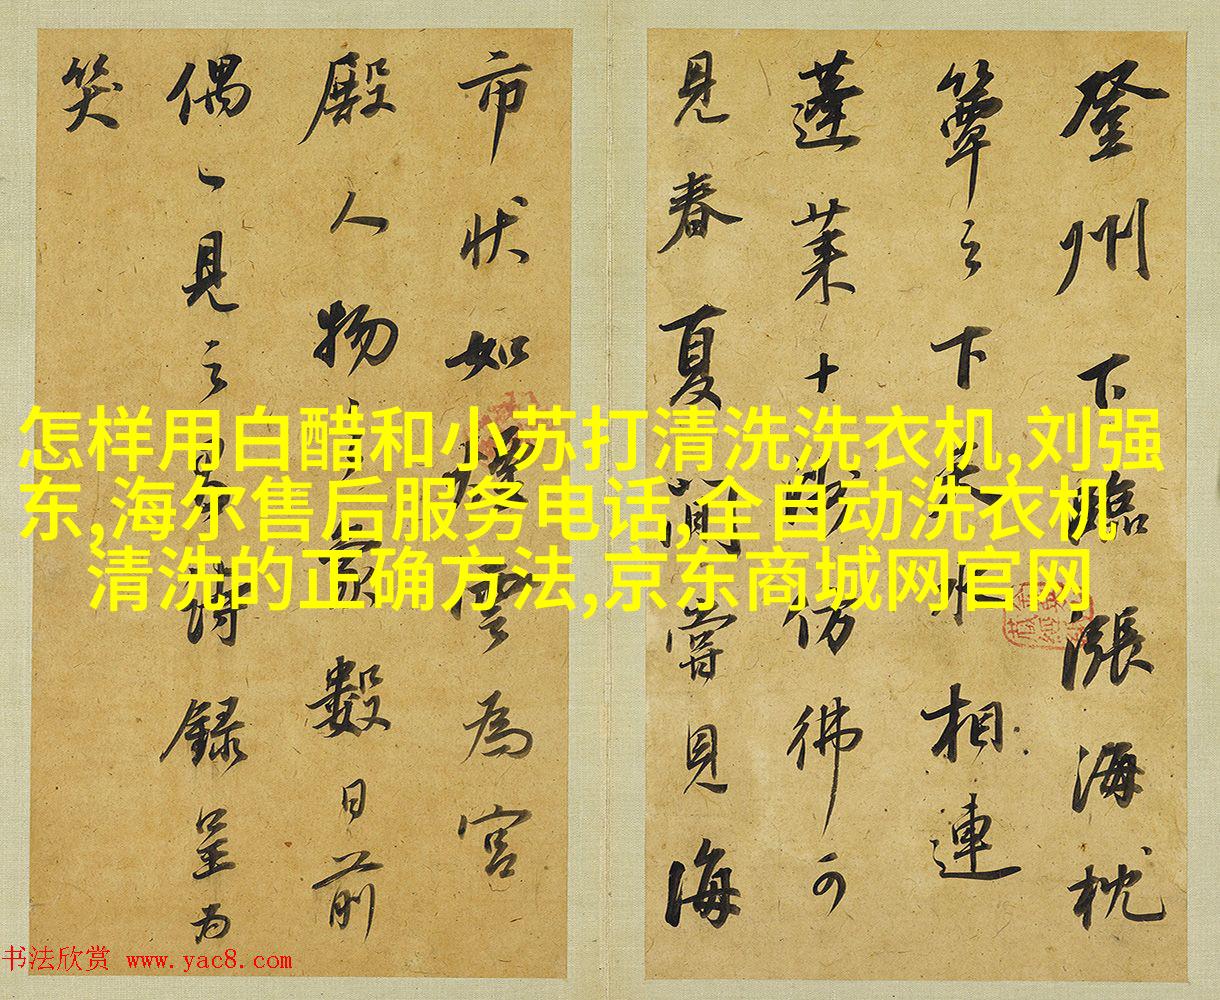 登州下臨漲海枕
簟之下天水相連
蓬莱十仿彿可
見春夏間嘗見海
市状如煙雲為宮
殿人物之象數日前
偶一見之詩録呈為
笑
怎样用白醋和小苏打清洗洗衣机,刘强
东,海尔售后服务电话,全自动洗衣机
清洗的正确方法,京东商城网官网
书法欣赏 www.yac8.com